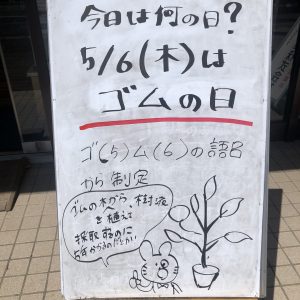 今日は何の日?
5/6(木)は
ゴムの日
ゴ(5)ム(6)の語呂
から制定
ゴムの木から、樹液
を植えて
採取するのに
5年かかるのだとかい